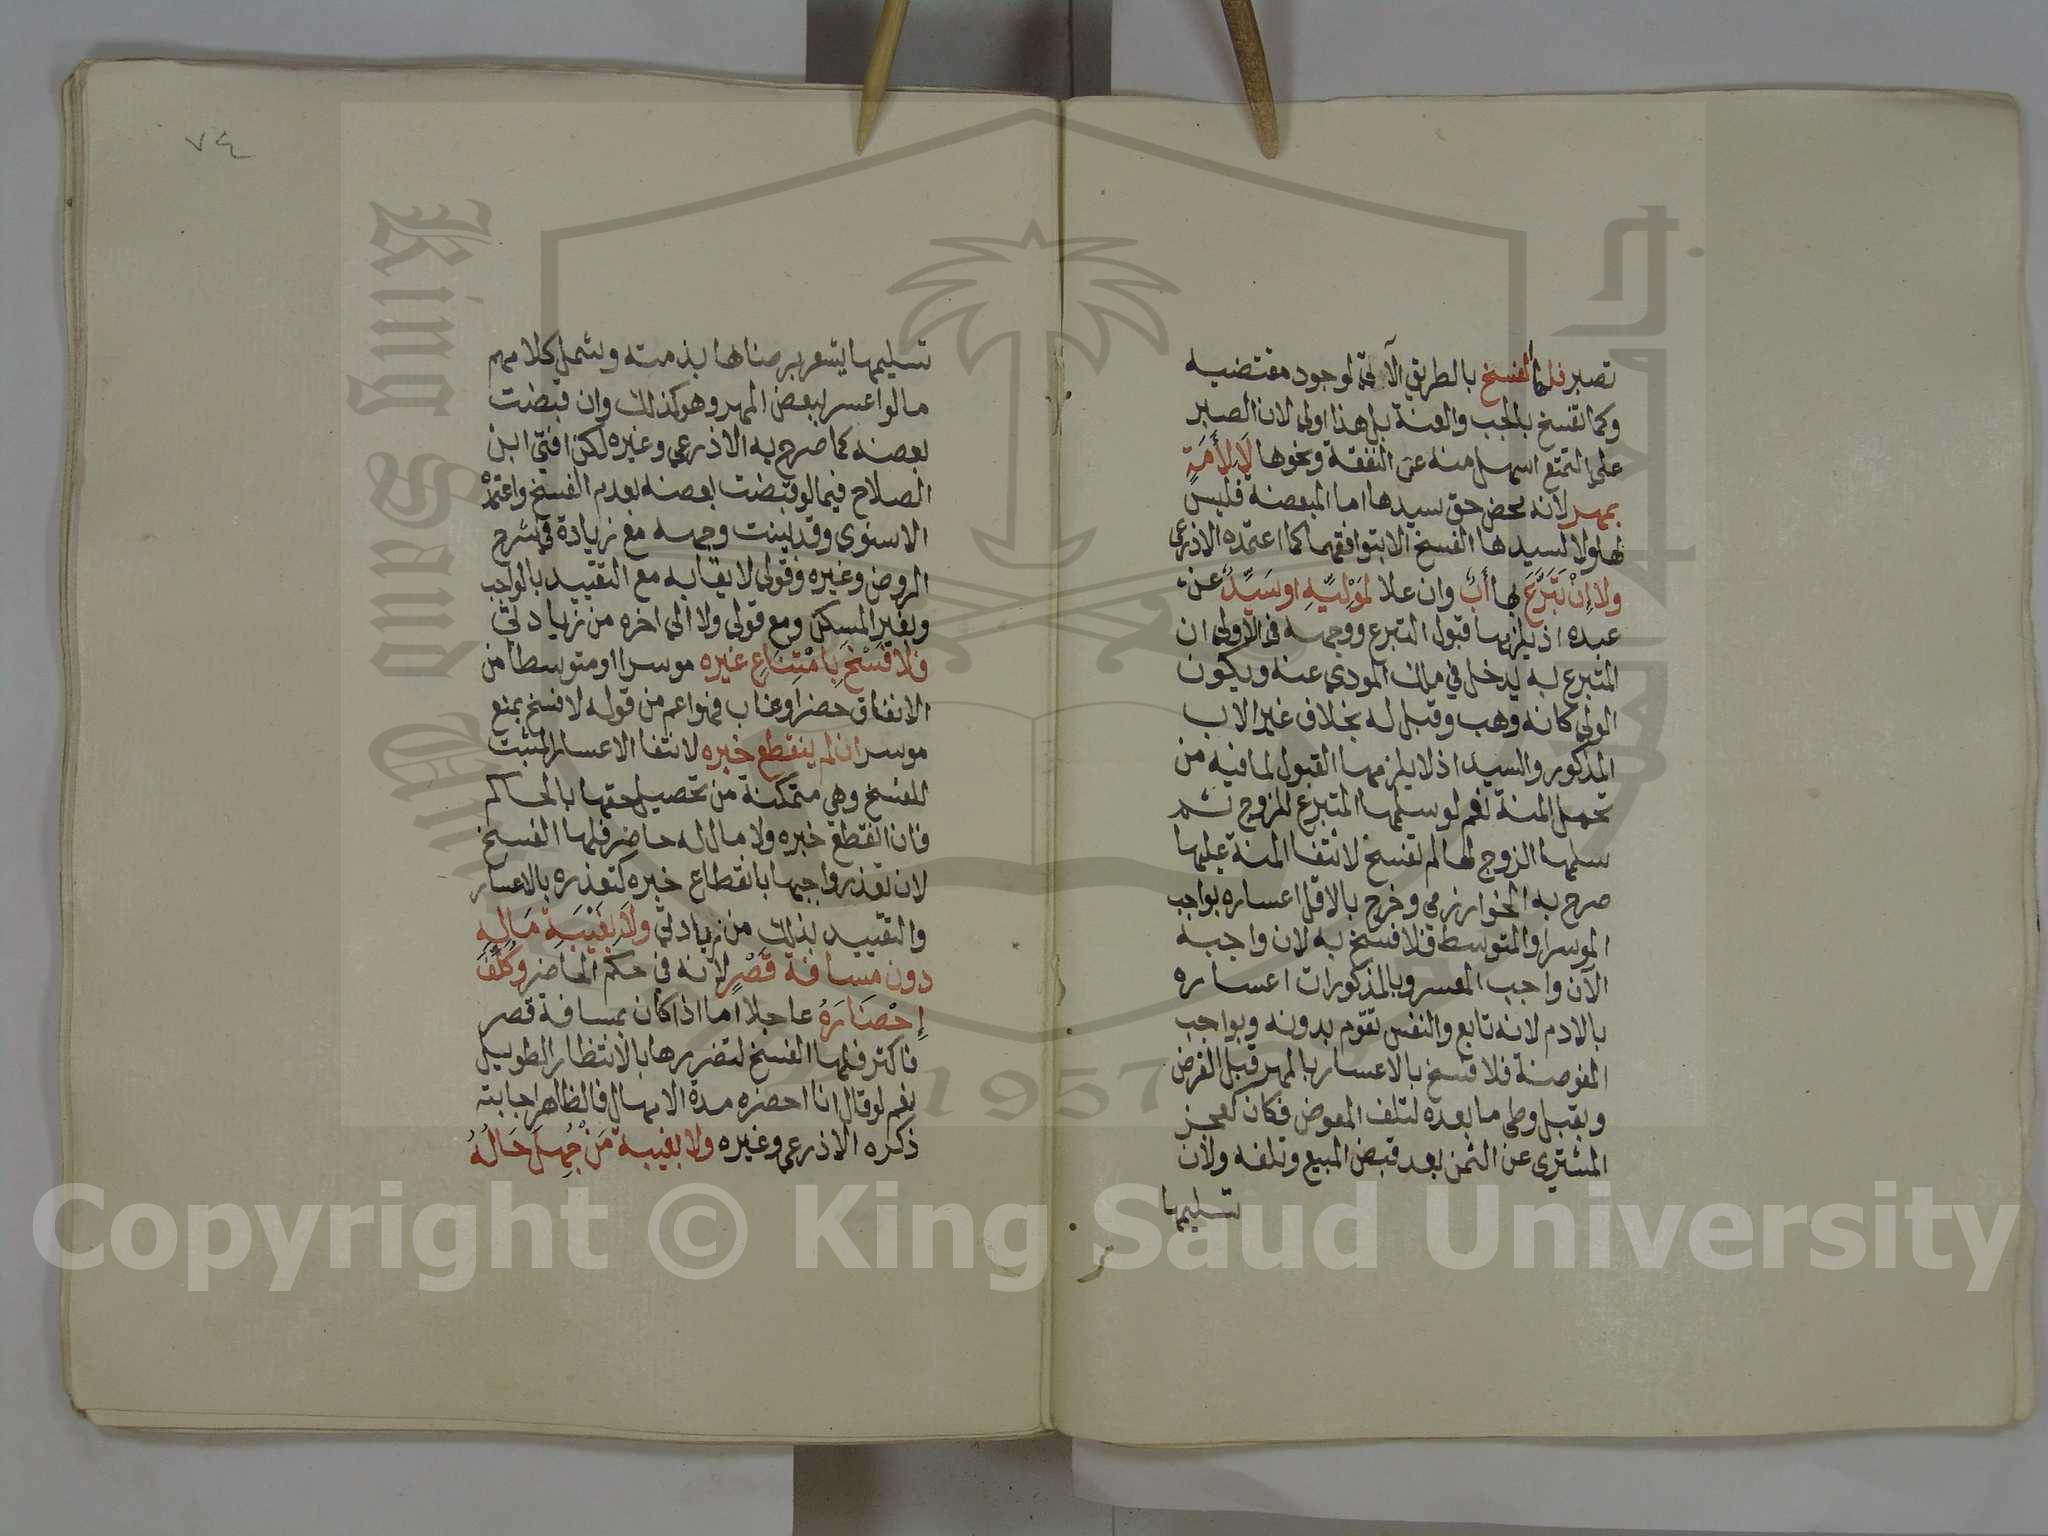 تصبر فلها الفسخ بالطريق الآتي لوجود مقتضيه
وكما تفسخ بالجب والعنة بل هذا اولى لان الصبر
على التمتع اسهل منه عن النفقة ونحوها لَا لِأَمَةٍ
بمهر لانه محض حق سيدها اما المبعضة فليس
لها ولا لسيدها الفسخ الا بتوافقهما كما اعتمده الاذرعي
ولا إِنْ تَبَرَّعَ بها أَبٌ وان علا لِمَوْلِيِّهِ او سَيِّدٌ عن
عبده اذ يلزمها قبول التبرع ووجهه في الاولى ان
المتبرع به يدخل في ملك المودى عنه ويكون
الولي كانه وهب وقبل له بخلاف غير الاب
المذكور والسيد اذ لا يلزمها القبول لما فيه من
تحمل المنة نعم لو سلمها المتبرع للزوج ثم
سلمها الزوج لها لم تفسخ لانتفا المنة عليها
صرح به الخوارزمي وخرج بالاقل اعساره بواجب
الموسر او المتوسط فلا فسخ به لان واجبه
الآن واجب المعسر وبالمذكورات اعساره
بالادم لانه تابع والنفس تقوم بدونه وبواجب
المفوضة فلا فسخ بالاعسار بالمهر قبل الفرض
وبقبل وطى ما بعده لتلف المعوض فكان كعجز
المشتري عن الثمن بعد قبض المبيع وتلفه ولان
تسليمها
٧٤
تسليمها يشعر برضاها بذمته وشمل كلامهم
ما لو اعسر ببعض المهر وهو كذلك وان قبضت
بعضه كما صرح به الاذرعي وغيره لكن افتى ابن
الصلاح فيما لو قبضت بعضه بعدم الفسخ واعتمده
الاسنوي وقد بينت وجهه مع زيادة في شرح
الروض وغيره وقولي لا بقايه مع التقييد بالواجب
وبغير المسكن ومع قولي ولا الى اخره من زيادتي
فلا فَسْخَ بِامْتِنَاعِ غيره موسرا او متوسطا من
الانفاق حضر او غاب فهو اعم من قوله لا فسخ بمنع
موسر ان لم ينقطع خبره لانتفا الاعسار المثبت
للفسخ وهي متمكنة من تحصيل حقها بالحاكم
فان انقطع خبره ولا مال له حاضر فلها الفسخ
لان تعذر واجبها بانقطاع خبره كتعذره بالاعسار
والتقييد بذلك من زيادتي وَلَا بِغَيْبَةِ مَالِهِ
دون مسافة قَصْرٍ لانه في حكم الحاضر وكُلِّفَ
إِحْضَارَهُ عاجلا اما اذا كان بمسافة قصر
فاكثر فلها الفسخ لتضررها بالانتظار الطويل
نعم لو قال انا احضره مدة الامهال فالظاهر اجابته
ذكره الاذرعي وغيره ولا بغيبة مَنْ جُهِلَ حَالُهُ
King Saud University
1957
Copyright © King Saud University